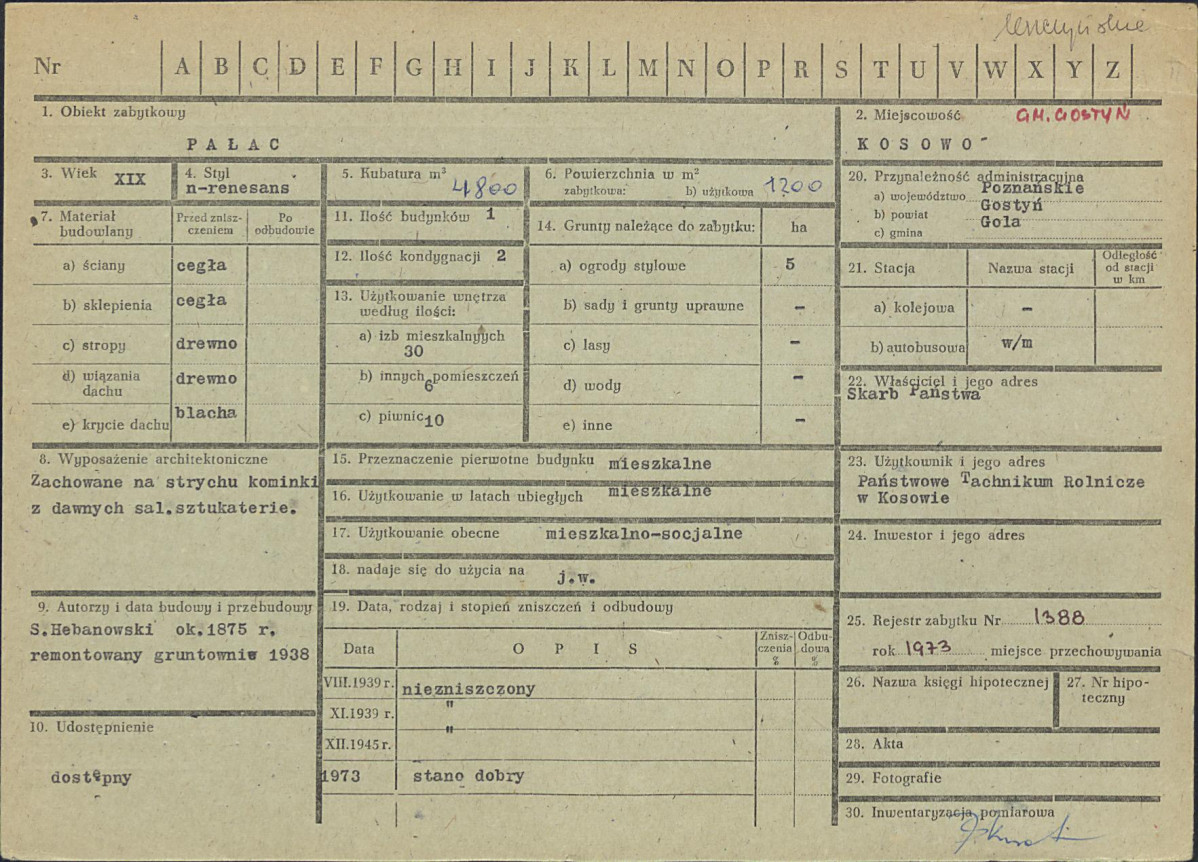 Nr A B C D E F G H I J K L M N O P R S T U V W X Y Z
1. Obiekt zabytkowy
PAŁAC
2. Miejscowość GM. GOSTYŃ
KOSOWO
3. Wiek XIX
4. Styl
n-renesans
5. Kubatura m³ 4800
6. Powierzchnia w m²
zabytkowa: b) użytkowa 1200
20. Przynależność administracyjna
a) województwo Poznańskie
b) powiat Gostyń
c) gmina Gola
7. Materiał budowlany
Przed zniszczeniem
Po odbudowie
a) ściany cegła
b) sklepienia cegła
c) stropy drewno
d) wiązania dachu drewno
e) krycie dachu blacha
11. Ilość budynków 1
12. Ilość kondygnacji 2
13. Użytkowanie wnętrza
według ilości:
a) izb mieszkalnych
30
b) innych pomieszczeń
6
c) piwnic 10
14. Grunty należące do zabytku: ha
a) ogrody stylowe 5
b) sady i grunty uprawne –
c) lasy –
d) wody –
e) inne –
21. Stacja
Nazwa stacji
Odległość
od stacji
w km
a) kolejowa –
b) autobusowa w/m
22. Właściciel i jego adres
Skarb Państwa
8. Wyposażenie architektoniczne
Zachowane na strychu kominki
z dawnych sal.sztukaterie.
15. Przeznaczenie pierwotne budynku mieszkalne
16. Użytkowanie w latach ubiegłych mieszkalne
17. Użytkowanie obecne mieszkalno-socjalne
18. nadaje się do użycia na j.w.
23. Użytkownik i jego adres
Państwowe Tachnikum Rolnicze
w Kosowie
24. Inwestor i jego adres
9. Autorzy i data budowy i przebudowy
S.Hebanowski ok.1875 r.
remontowany gruntownie 1938
19. Data, rodzaj i stopień zniszczeń i odbudowy
Data OPIS
Znisz-
czenia
%
Odbu-
dowa
%
VIII.1939 r. niezniszczony
XI.1939 r. "
XII.1945 r. "
1973 stano dobry
25. Rejestr zabytku Nr 1388
rok 1973 miejsce przechowywania
26. Nazwa księgi hipotecznej
27. Nr hipo-
teczny
10. Udostępnienie
dostępny
28. Akta
29. Fotografie
30. Inwentaryzacja pomiarowa